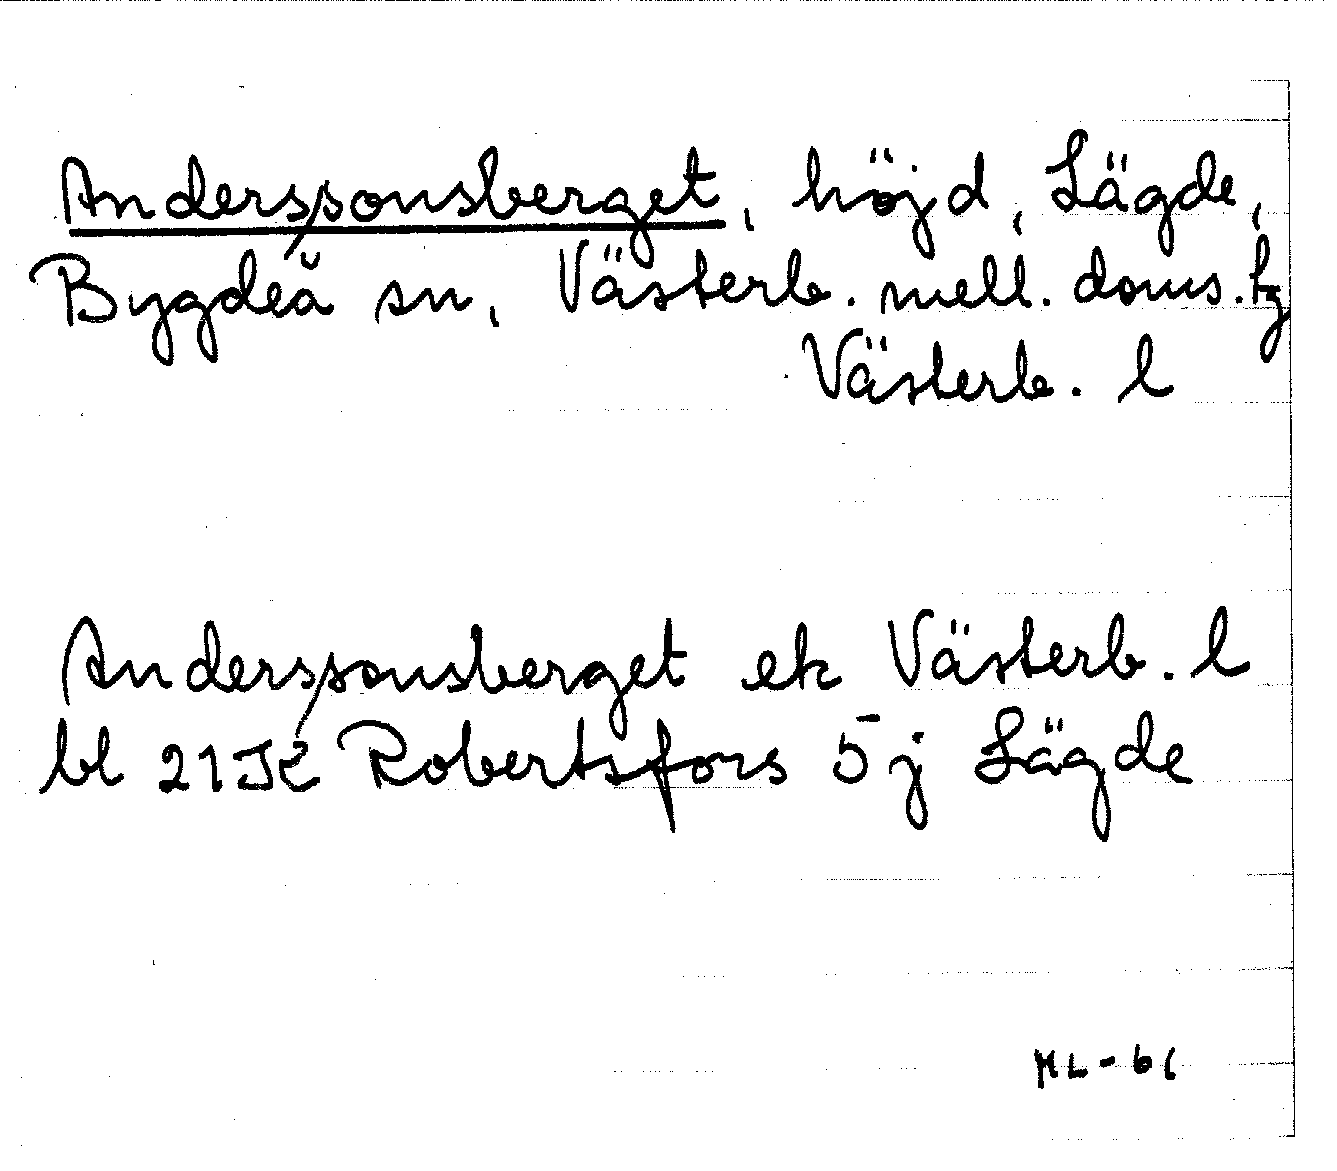 Anders/sonsberget, höjd, Lägde,
Bygdeå sn, Västerb. mell. doms. tg
Västerb. l
Anders/sonsberget ek Västerb. l
bl 21JK Robertsfors 5 j Lägde
ML-61